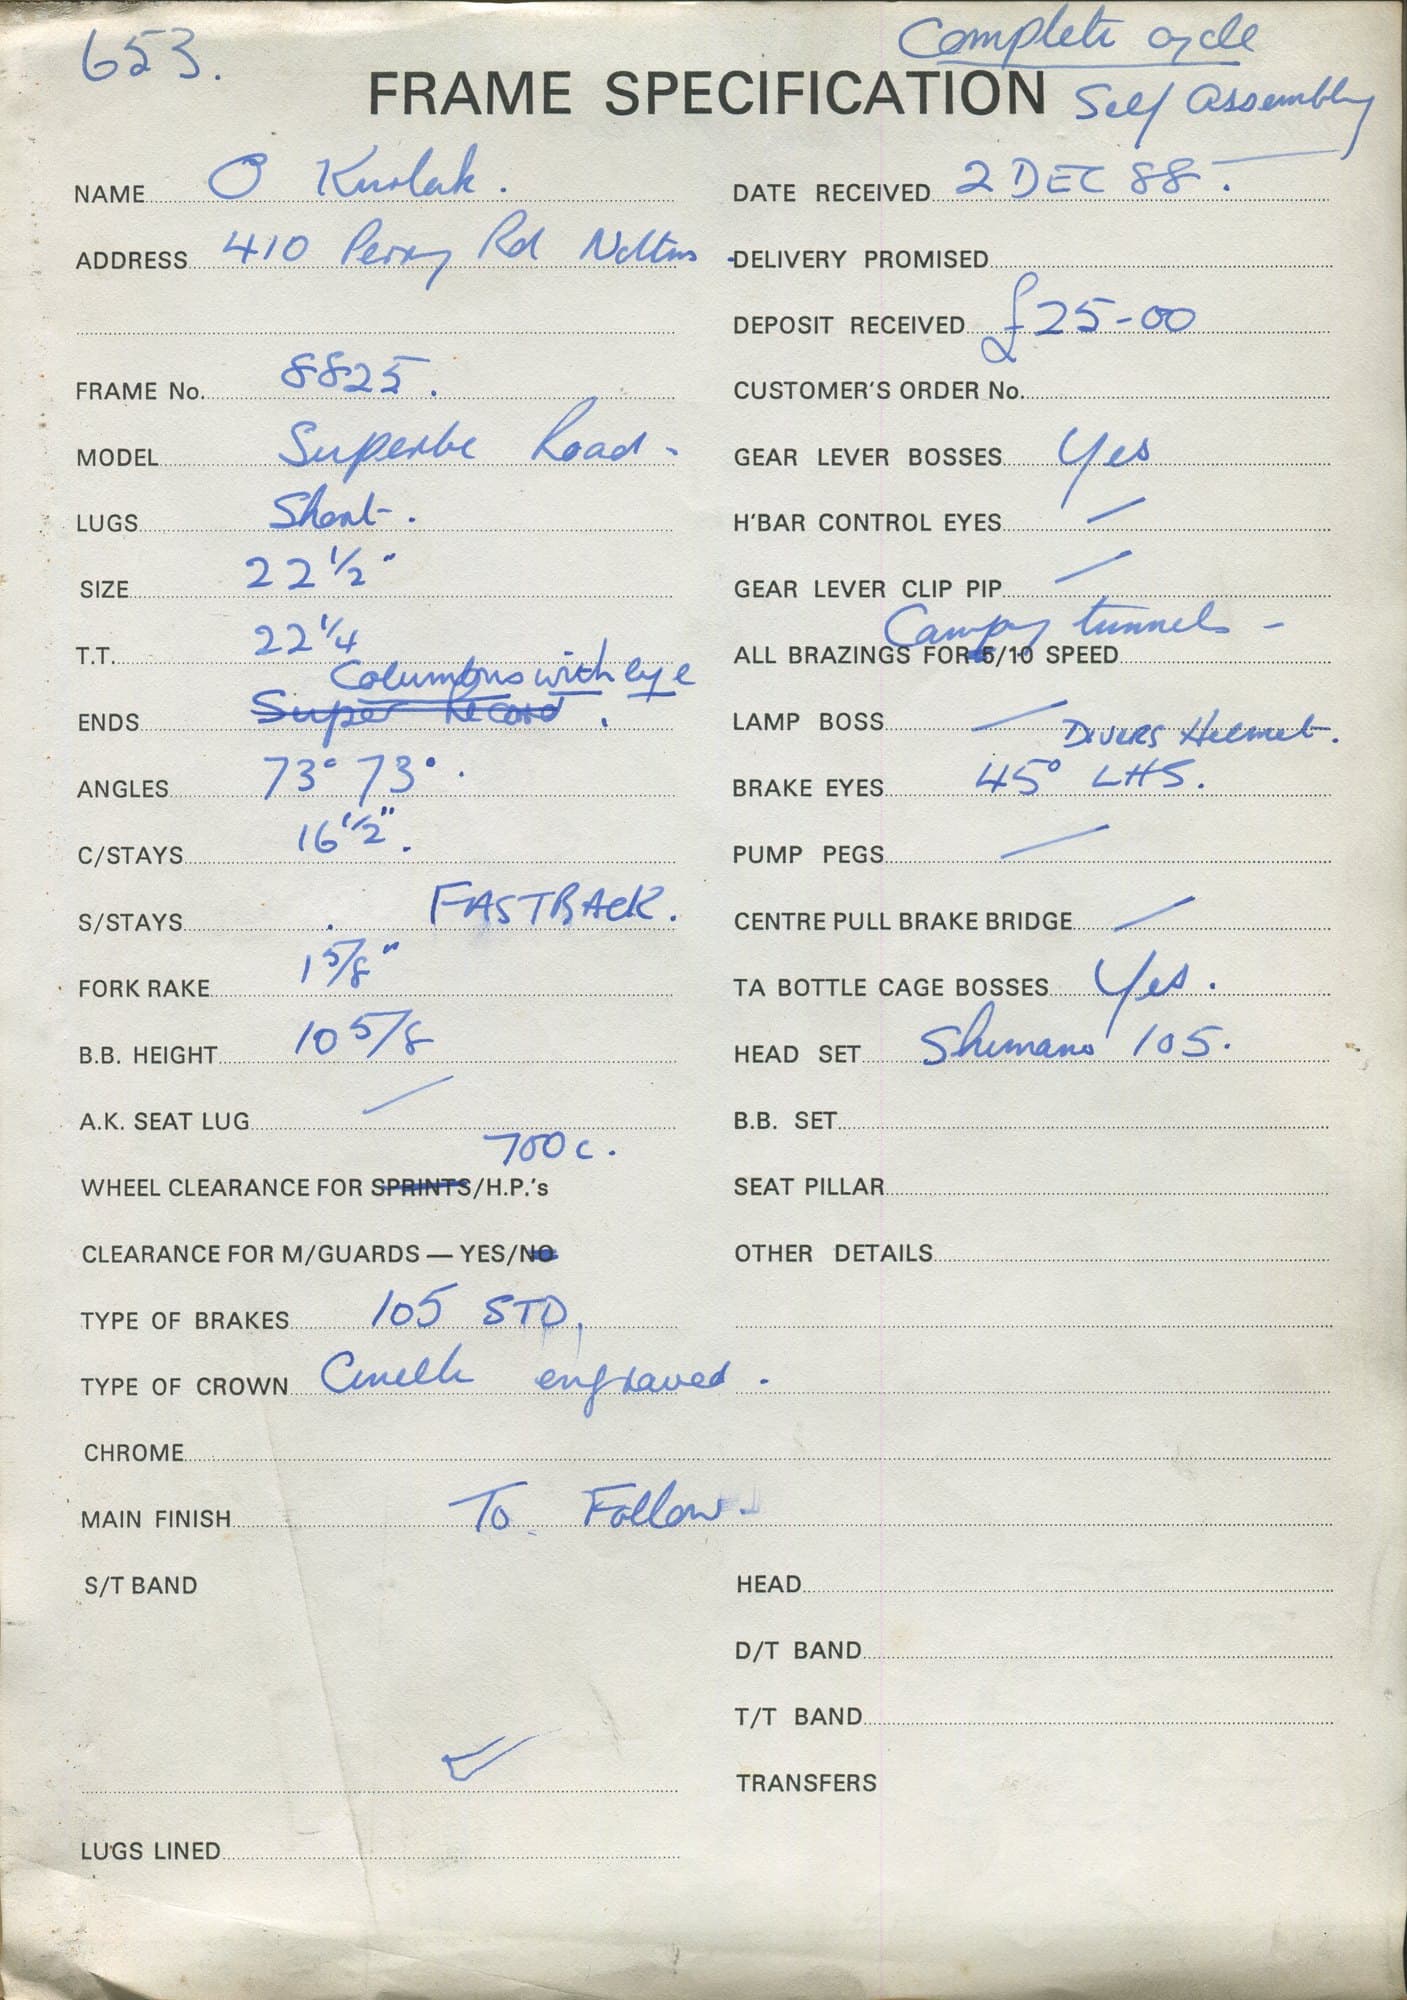 653.
Complete cycle
FRAME SPECIFICATION Self Assembly
NAME O
ADDRESS 410 Perry Rd
FRAME No. 8825.
MODEL Superbe Road -
LUGS Short - .
SIZE 22 1/2"
T.T. 22 1/4
Columbus with eye
ENDS Super Record .
ANGLES 73° 73° .
C/STAYS 16 1/2" .
S/STAYS . FASTBACK .
FORK RAKE 1 5/8"
B.B. HEIGHT 10 5/8
A.K. SEAT LUG /
700c.
WHEEL CLEARANCE FOR SPRINTS/H.P.'s
CLEARANCE FOR M/GUARDS — YES/NO
TYPE OF BRAKES 105 STD,
TYPE OF CROWN Cinelli engraved .
CHROME
MAIN FINISH To Follow .
S/T BAND
LUGS LINED
DATE RECEIVED 2 DEC 88 .
DELIVERY PROMISED
DEPOSIT RECEIVED £25-00
CUSTOMER'S ORDER No.
GEAR LEVER BOSSES Yes
H'BAR CONTROL EYES /
GEAR LEVER CLIP PIP /
Campy tunnels -
ALL BRAZINGS FOR 5/10 SPEED
LAMP BOSS /
DIVERS Helmet .
BRAKE EYES 45° LHS.
PUMP PEGS /
CENTRE PULL BRAKE BRIDGE /
TA BOTTLE CAGE BOSSES Yes .
HEAD SET Shimano 105.
B.B. SET
SEAT PILLAR
OTHER DETAILS
HEAD
D/T BAND
T/T BAND
TRANSFERS